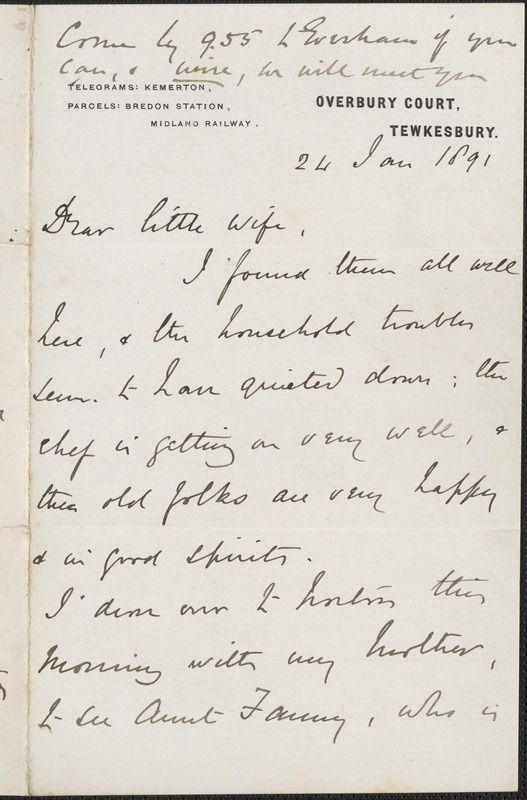 Come by 9.55 to Evesham if you
can, & wire, we will meet you
TELEGRAMS: KEMERTON,
PARCELS: BREDON STATION,
MIDLAND RAILWAY.
OVERBURY COURT,
TEWKESBURY.
24 Jan 1891
Dear little wife,
I found them all well
here, & the household troubles
seem to have quieted down; the
chef is getting on very well, &
the old folks are very happy
& in good spirits.
I drove over to Norton this
morning with my Mother,
to see Aunt Fanny, who is